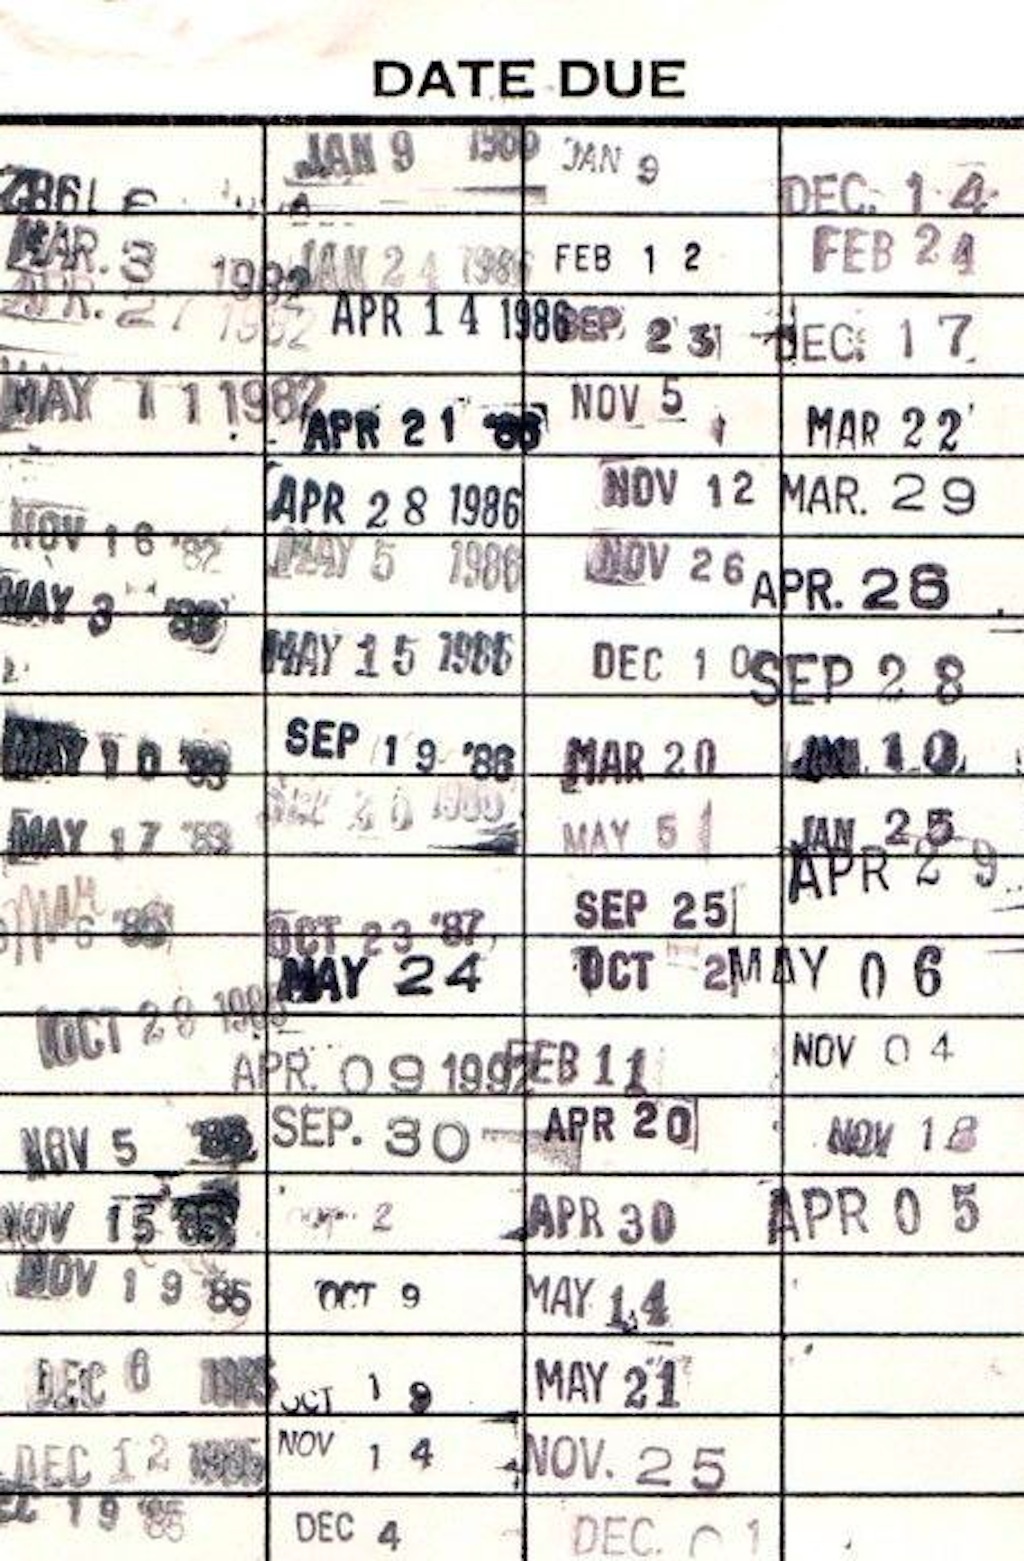 DATE DUE
MAR. 3 1982
APR. 27 1982
MAY 11 1982
NOV 16 '82
MAY 3 '83
MAY 10 '83
MAY 17 '83
OCT 28
NOV 5 '85
NOV 15 '85
NOV 19 '85
DEC 6 1985
DEC 12 1985
19 '85
JAN 9 1986
JAN 21 1986
APR 14 1986
APR 21 '86
APR 28 1986
MAY 5 1986
MAY 15 1986
SEP 19 '86
OCT 23 '87
MAY 24
APR. 09 1992
SEP. 30
2
OCT 9
OCT 19
NOV 14
DEC 4
JAN 9
FEB 12
SEP 23
NOV 5
NOV 12
NOV 26
DEC 10
MAR 20
MAY 5
SEP 25
OCT 2
FEB 11
APR 20
APR 30
MAY 14
MAY 21
NOV. 25
DEC. 01
DEC. 14
FEB 24
DEC. 17
MAR 22
MAR. 29
APR. 26
SEP 28
JAN. 10
JAN 25
APR 29
MAY 06
NOV 04
NOV 18
APR 05